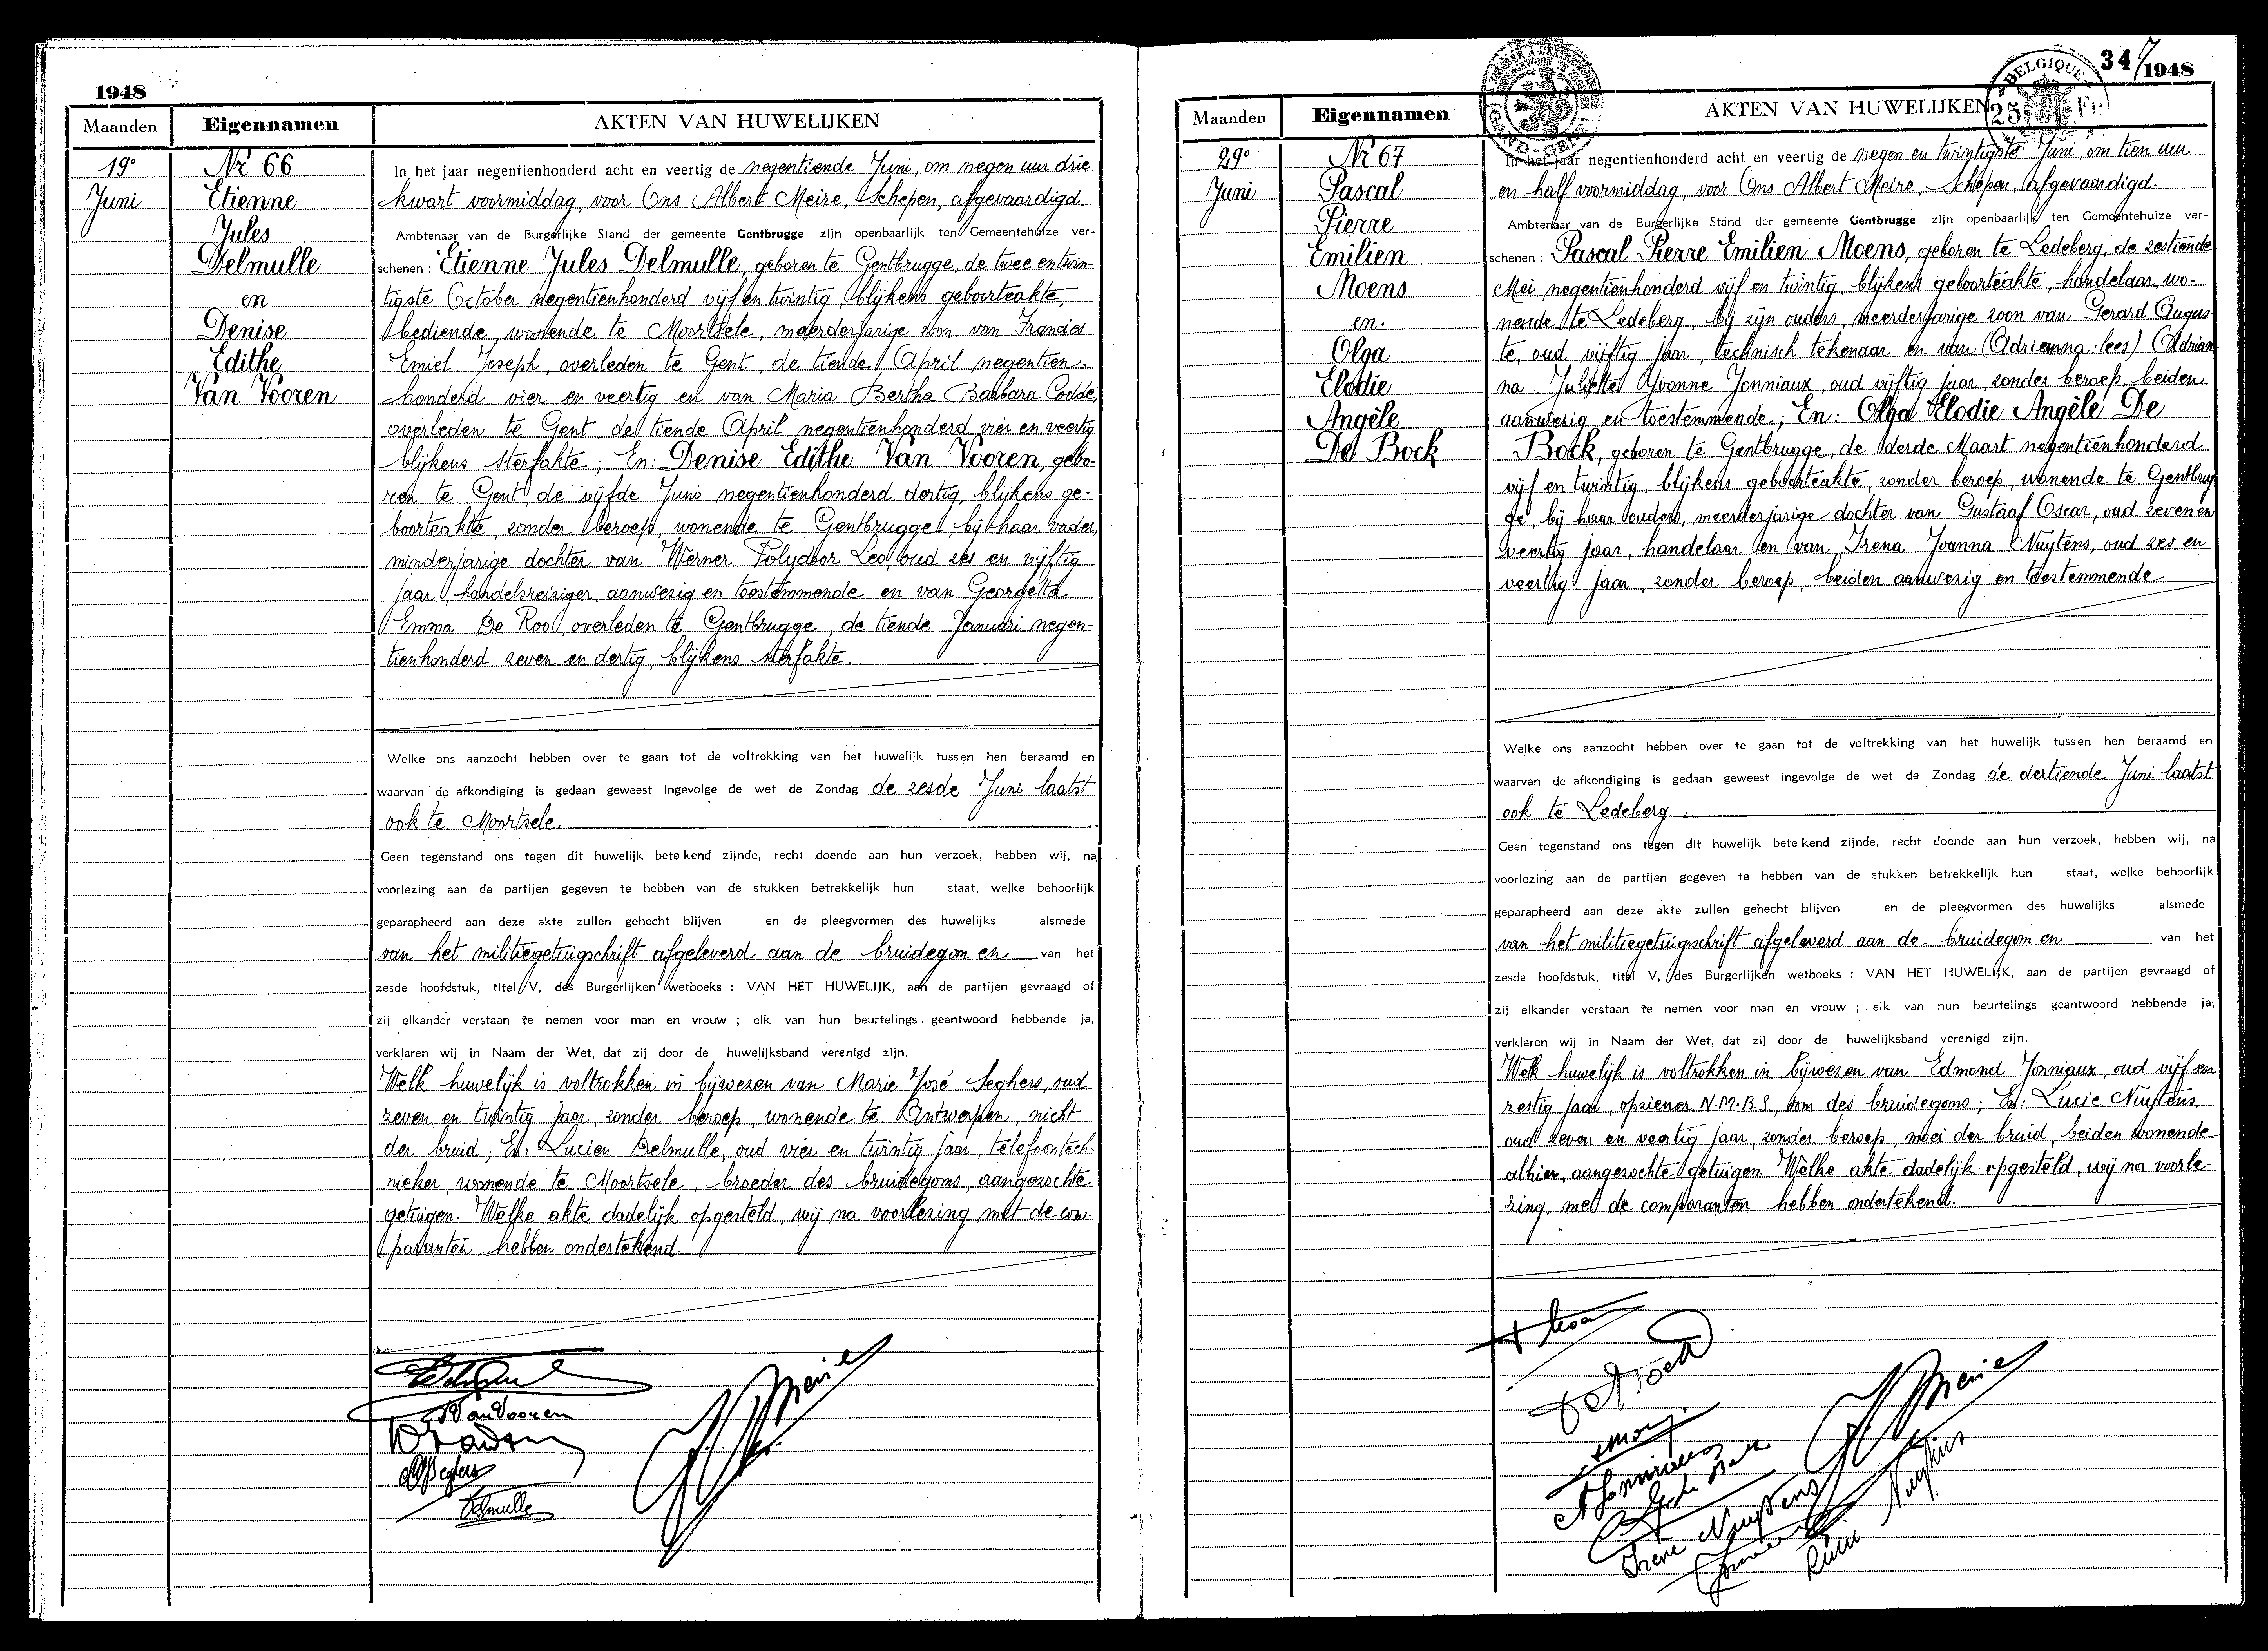 1948
Maanden
Eigennamen
AKTEN VAN HUWELIJKEN
19e
Juni
Nr 66
Etienne
Jules
Delmulle
en
Denise
Edithe
Van Vooren
In het jaar negentienhonderd acht en veertig de negentiende Juni, om negen uur drie
kwart voormiddag, voor Ons Albert Meire, Schepen, afgevaardigd
Ambtenaar van de Burgerlijke Stand der gemeente Gentbrugge zijn openbaarlijk ten Gemeentehuize ver-
schenen : Etienne Jules Delmulle, geboren te Gentbrugge, de twee entwin-
tigste October negentienhonderd vijf en twintig, blijkens geboorteakte,
bediende, wonende te Moortsele, meerderjarige zoon van Francies
Emiel Joseph, overleden te Gent, de tiende April negentien-
honderd vier en veertig en van Maria Bertha Barbara Codde,
overleden te Gent, de tiende April negentienhonderd vier en veertig
blijkens sterfakte; En: Denise Edithe Van Vooren, gebo-
ren te Gent de vijfde Juni negentienhonderd dertig, blijkens ge-
boorteakte, zonder beroep, wonende te Gentbrugge, bij haar vader,
minderjarige dochter van Werner Polydoor Leo, oud zes en vijftig
jaar, handelsreiziger, aanwezig en toestemmende en van Georgetta
Emma De Roo, overleden te Gentbrugge, de tiende Januari negen-
tienhonderd zeven en dertig, blijkens sterfakte.
Welke ons aanzocht hebben over te gaan tot de voltrekking van het huwelijk tussen hen beraamd en
waarvan de afkondiging is gedaan geweest ingevolge de wet de Zondag de zesde Juni laatst
ook te Moortsele.
Geen tegenstand ons tegen dit huwelijk betekend zijnde, recht doende aan hun verzoek, hebben wij, na
voorlezing aan de partijen gegeven te hebben van de stukken betrekkelijk hun staat, welke behoorlijk
geparapheerd aan deze akte zullen gehecht blijven en de pleegvormen des huwelijks alsmede
van het militiegetuigschrift afgeleverd aan de bruidegom en van het
zesde hoofdstuk, titel V, des Burgerlijken wetboeks : VAN HET HUWELIJK, aan de partijen gevraagd of
zij elkander verstaan te nemen voor man en vrouw ; elk van hun beurtelings geantwoord hebbende ja,
verklaren wij in Naam der Wet, dat zij door de huwelijksband verenigd zijn.
Welk huwelijk is voltrokken in bijwezen van Marie José Seghers, oud
zeven en twintig jaar, zonder beroep, wonende te Antwerpen, nicht
der bruid; En: Lucien Delmulle, oud vier en twintig jaar, telefoontech-
nieker, wonende te Moortsele, broeder des bruidegoms, aangezochte
getuigen. Welke akte dadelijk opgesteld, wij na voorlezing met de com-
paranten hebben ondertekend.
VanVooren
Delmulle
347
1948
Maanden
Eigennamen
AKTEN VAN HUWELIJKEN
GAND - GENT
BELGIQUE
25 Fr
29e
Juni
Nr 67
Pascal
Pierre
Emilien
Moens
en
Olga
Elodie
Angèle
De Bock
In het jaar negentienhonderd acht en veertig de negen en twintigste Juni, om tien uur
en half voormiddag, voor Ons Albert Meire, Schepen, afgevaardigd.
Ambtenaar van de Burgerlijke Stand der gemeente Gentbrugge zijn openbaarlijk ten Gemeentehuize ver-
schenen : Pascal Pierre Emilien Moens, geboren te Ledeberg, de zestiende
Mei negentienhonderd vijf en twintig, blijkens geboorteakte, handelaar, wo-
nende te Ledeberg, bij zijn ouders, meerderjarige zoon van Gerard Augus-
te, oud vijftig jaar, technisch tekenaar en van (Adrienna-lees) (Adrian-
na Juliette Yvonne Jonniaux, oud vijftig jaar, zonder beroep, beiden
aanwezig en toestemmende; En: Olga Elodie Angèle De
Bock, geboren te Gentbrugge, de derde Maart negentienhonderd
vijf en twintig, blijkens geboorteakte, zonder beroep, wonende te Gentbrug
ge, bij haar ouders, meerderjarige dochter van Gustaaf Oscar, oud zeven en
veertig jaar, handelaar en van Irena Joanna Nuytens, oud zes en
veertig jaar, zonder beroep, beiden aanwezig en toestemmende
Welke ons aanzocht hebben over te gaan tot de voltrekking van het huwelijk tussen hen beraamd en
waarvan de afkondiging is gedaan geweest ingevolge de wet de Zondag de dertiende Juni laatst
ook te Ledeberg.
Geen tegenstand ons tegen dit huwelijk betekend zijnde, recht doende aan hun verzoek, hebben wij, na
voorlezing aan de partijen gegeven te hebben van de stukken betrekkelijk hun staat, welke behoorlijk
geparapheerd aan deze akte zullen gehecht blijven en de pleegvormen des huwelijks alsmede
van het militiegetuigschrift afgeleverd aan de bruidegom en van het
zesde hoofdstuk, titel V, des Burgerlijken wetboeks : VAN HET HUWELIJK, aan de partijen gevraagd of
zij elkander verstaan te nemen voor man en vrouw ; elk van hun beurtelings geantwoord hebbende ja,
verklaren wij in Naam der Wet, dat zij door de huwelijksband verenigd zijn.
Welk huwelijk is voltrokken in bijwezen van Edmond Jonniaux, oud vijf en
zestig jaar, opziener N.M.B.S, oom des bruidegoms; En: Lucie Nuytens,
oud zeven en veertig jaar, zonder beroep, moei der bruid, beiden wonende
alhier, aangezochte getuigen. Welke akte dadelijk opgesteld, wij na voorle-
zing, met de comparanten hebben ondertekend.
Irene Nuytens
Nuytens